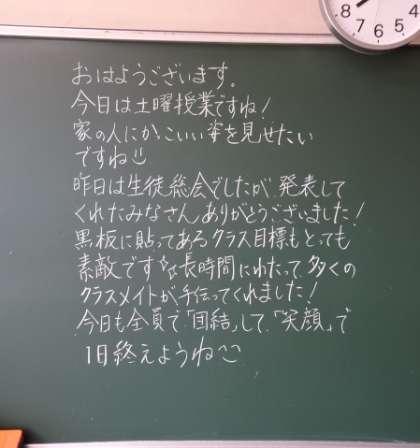 おはようございます。
今日は土曜授業ですね!
家の人にかっこいい姿を見せたい
ですね
昨日は生徒総会でしたが、発表して
くれたみなさん、ありがとうございました!
黒板に貼ってあるクラス目標もとっても
素敵です☆☆長時間にわたって、多くの
クラスメイトが手伝ってくれました!
今日も全員で「団結」して、「笑顔」で
1日終えようね
8 7 6 5 4